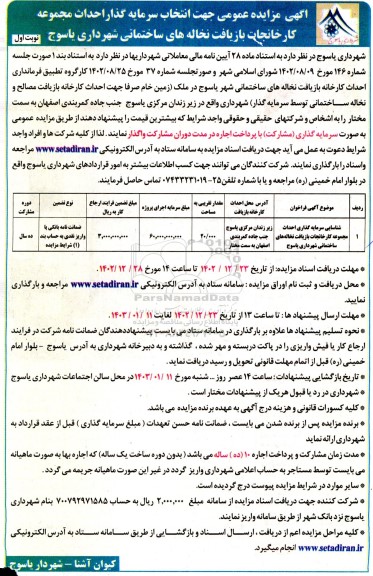 آگهی مزایده عمومی جهت انتخاب سرمایه گذار احداث مجموعه
کارخانجات بازیافت نخاله های ساختمانی شهرداری یاسوج
نوبت اول
شهرداری یاسوج در نظر دارد به استناد ماده ۲۸ آیین نامه مالی معاملاتی شهرداریها در نظر دارد به استناد بند ۱ صورت جلسه
شماره ۱۴۶ مورخ ۱۴۰۲/۰۸/۰۹ شورای اسلامی شهر و صورتجلسه شماره ۳۷ مورخ ۱۴۰۲/۰۸/۲۵ کارگروه تطبیق فرمانداری
احداث کارخانه بازیافت نخاله های ساختمانی شهر یاسوج در ملک (زمین خام صرفا جهت احداث کارخانه بازیافت مصالح و
نخاله ساختمانی توسط سرمایه گذار) شهرداری واقع در زیر زندان مرکزی یاسوج جنب جاده کمربندی اصفهان به سمت
مختار را به اشخاص و شرکتهای حقیقی و حقوقی واجد شرایط که بیشترین قیمت را پیشنهاد دهند از طریق مزایده عمومی
به صورت سرمایه گذاری (مشارکت) با پرداخت اجاره در مدت دوران مشارکت واگذار نمایند. لذا از کلیه شرکت ها و افراد واجد
شرایط دعوت به عمل می آید جهت دریافت اسناد مزایده به سامانه ستاد به آدرس الکترونیکی www.setadiran.ir مراجعه
و اسناد را بارگذاری نمایند. شرکت کنندگان می توانند جهت کسب اطلاعات بیشتر به امور قراردادهای شهرداری یاسوج واقع
در بلوار امام خمینی (ره) مراجعه و یا با شماره تلفن ۲۵-۰۷۴۳۳۲۳۱۰۱۹ تماس حاصل فرمایند.
ردیف موضوع آگهی فراخوان آدرس محل احداث کارخانه بازیافت مقدار تقریبی به مساحت مبلغ سرمایه اجرای پروژه مبلغ تضمین فرایند ارجاع کار به ریال نوع تضمین دوره مشارکت
۱ شناسایی سرمایه گذاری احداث مجموعه کارخانجات بازیافت نخاله‌های ساختمانی شهرداری یاسوج زیر زندان مرکزی یاسوج جنب جاده کمربندی اصفهان به سمت مختار ۲۰/۰۰۰ ۶۰,۰۰۰,۰۰۰,۰۰۰ ۳,۰۰۰,۰۰۰,۰۰۰ ضمانت نامه بانکی یا واریز نقدی به حساب بند ۱) شرایط مزایده ده سال
* مهلت دریافت اسناد مزایده: از تاریخ ۲۳ / ۱۲ / ۱۴۰۲ تا ساعت ۱۴ مورخ ۲۸ / ۱۲ / ۱۴۰۲.
* محل دریافت و ثبت نام اوراق مزایده : سامانه ستاد به آدرس الکترونیکی www.setadiran.ir مراجعه و بارگذاری
نمایید.
* مهلت ارسال پیشنهاد ها : تا ساعت ۱۳ از تاریخ ۲۳ / ۱۲ / ۱۴۰۲ لغایت ۱۱ / ۰۱ / ۱۴۰۳.
* نحوه تسلیم پیشنهاد ها علاوه بر بارگذاری در سامانه ستاد می بایست پیشنهاددهندگان ضمانت نامه شرکت در فرایند
ارجاع کار یا فیش واریزی را در پاکت دربسته و مهر شده ، گذاشته و به دبیرخانه شهرداری به آدرس یاسوج – بلوار امام
خمینی (ره) قبل از اتمام مهلت قانونی تحویل و رسید دریافت نماید.
* تاریخ بازگشایی پیشنهادات : ساعت ۱۴ عصر روز ... شنبه مورخ ۱۱ / ۰۱ /۱۴۰۳ در محل سالن اجتماعات شهرداری یاسوج
* شهرداری در رد یا قبول هریک از پیشنهادات مختار است .
* کلیه کسورات قانونی و هزینه درج آگهی به عهده برنده مزایده می باشد.
* برنده مزایده پس از برنده شدن می بایست ، ضمانت نامه حسن تعهدات ( مبلغ سرمایه گذاری ) قبل از عقد قرارداد به
شهرداری ارائه نماید
* مدت زمان مشارکت و پرداخت اجاره ۱۰ (ده ) ساله می باشد ( بدون دوره ساخت یک ساله) که اجاره بها به صورت ماهیانه
می بایست توسط مستاجر به حساب اعلامی شهرداری واریز گردد در غیر این صورت ماهیانه جریمه می گردد.
* سایر موارد در شرایط مزایده پیوست درج گردیده است.
* شرکت کننده جهت دریافت اسناد مزایده از سامانه مبلغ ۲,۰۰۰,۰۰۰ ریال به حساب ۷۰۰۷۹۲۹۷۱۵۸۵ بنام شهرداری
یاسوج نزد بانک شهر از طریق سامانه واریز نمایند.
* کلیه مراحل مزایده اعم از دریافت ، ارسال اسناد و بازگشایی از طریق سامانه ستاد به آدرس الکترونیکی
www.setadiran.ir انجام میگیرد.
کیوان آشنا - شهردار یاسوج